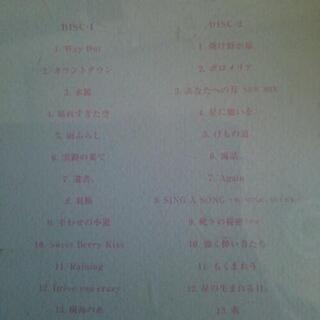 DISC-1
1. Way Out
2. カウントダウン
3. 水鏡
4. 晴れすぎた空
5. 雨ふらし
6. 雲路の果て
7. 遺書。
8.
9. 幸わせの小道
10. Sweet Berry Kiss
11. Raining
12. Drive you crazy
13. 樹海の糸
DISC-2
1. 焼け野が原
2. ポロメリア
3. あなたへの月 NEW MIX
4. 星に願いを
5. けもの道
6.
7. Again
8. SING A SONG
9.
10. 強く儚い者たち
11. もくまおう
12. 星の生まれる日。
13.